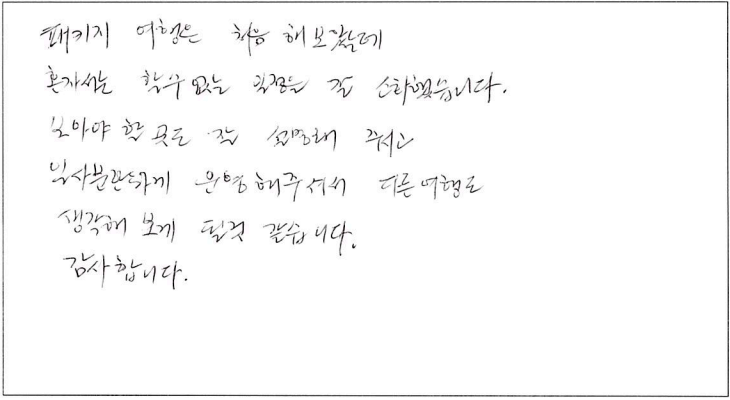 패키지 여행은 처음 해보았는데
혼자서는 할수 없는 일정을 잘 소화했습니다.
보아야 할 곳도 잘 설명해 주시고
일사분란하게 운영해주셔서 다른여행도
생각해 보게 될것 같습니다.
감사합니다.